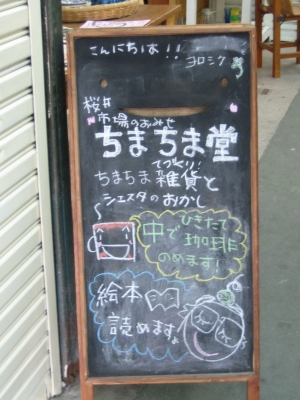 こんにちは!!
ヨロシク
桜井
市場のおみせ
ちまちま堂
てづくり!
ちまちま雑貨と
シエスタのおかし
ひきたて
中で珈琲
のめます!
絵本
読めますよ